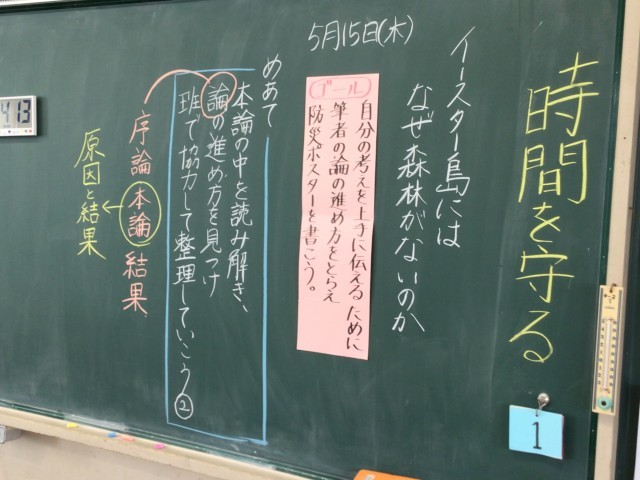 時間を守る
1
5月15日(木)
イースター島には
なぜ森林がないのか
ゴール
自分の考えを上手に伝えるために
筆者の論の進め方をとらえ
防災ポスターを書こう。
めあて
本論の中を読み解き、
論の進め方を見つけ
班で協力して整理していこう②
序論 本論 結果
原因と結果
413